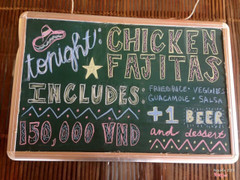 tonight:
CHICKEN
FAJITAS
INCLUDES:
VEGGIES
GUACAMOLE + SALSA
+1 BEER
and dessert
150,000 VND